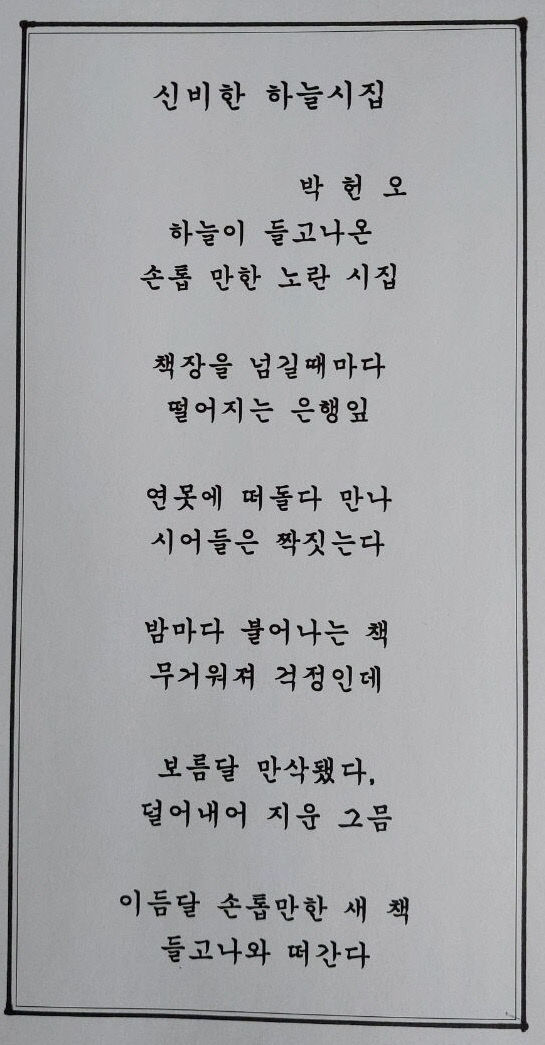 신비한 하늘시집
박 헌 오
하늘이 들고나온
손톱 만한 노란 시집
책장을 넘길때마다
떨어지는 은행잎
연못에 떠돌다 만나
시어들은 짝짓는다
밤마다 불어나는 책
무거워져 걱정인데
보름달 만삭됐다,
덜어내어 지운 그믐
이듬달 손톱만한 새 책
들고나와 떠간다